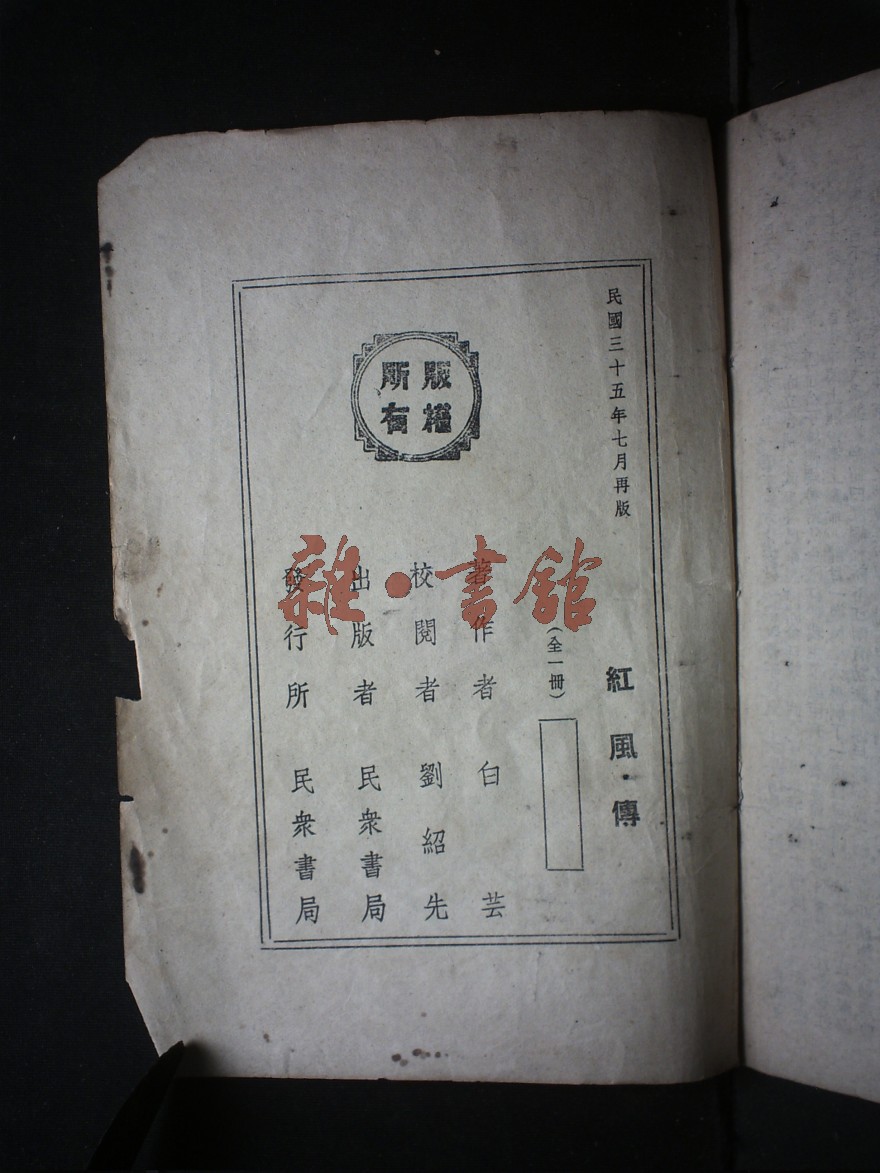 民國三十五年七月再版
紅風·傳
(全一冊)
著作者 白芸
校閱者 劉紹先
出版者 民衆書局
發行所 民衆書局
版權所有
雜·書館